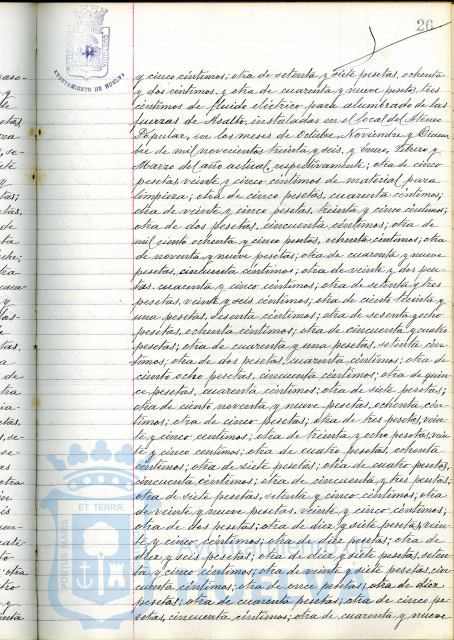 26
AYUNTAMIENTO DE HUELVA
y cinco céntimos; otra de setenta y siete pesetas, ochenta
y dos céntimos y otra de cuarenta y nueve pesetas, tres
céntimos de fluido eléctrico para alumbrado de las
fuerzas de Asalto, instaladas en el local del Ateneo
Popular, en los meses de Octubre, Noviembre y Diciem
bre de mil novecientos treinta y seis, y Enero, Febrero y
Marzo del año actual, respectivamente; otra de cinco
pesetas, veinte y cinco céntimos de material para
limpieza; otra de cinco pesetas, cuarenta céntimos;
otra de veinte y cinco pesetas, treinta y cinco céntimos;
otra de dos pesetas, cincuenta céntimos; otra de
mil ciento ochenta y cinco pesetas, ochenta céntimos; otra
de noventa y nueve pesetas; otra de cuarenta y nueve
pesetas, cincuenta céntimos; otra de veinte y dos pese
tas, cuarenta y cinco céntimos; otra de setenta y tres
pesetas, veinte y seis céntimos; otra de ciento treinta y
una pesetas, sesenta céntimos; otra de sesenta y ocho
pesetas, ochenta céntimos; otra de cincuenta y cuatro
pesetas; otra de cuarenta y una pesetas, setenta cén
timos; otra de dos pesetas, cuarenta céntimos; otra de
ciento ocho pesetas, cincuenta céntimos; otra de quin
ce pesetas, cuarenta céntimos; otra de siete pesetas;
otra de ciento noventa y nueve pesetas, ochenta cén
timos; otra de cinco pesetas; otra de tres pesetas, vein
te y cinco céntimos; otra de treinta y ocho pesetas, vein
te y cinco céntimos; otra de cuatro pesetas, ochenta
céntimos; otra de siete pesetas; otra de cuatro pesetas,
cincuenta céntimos; otra de cincuenta y tres pesetas;
otra de siete pesetas, setenta y cinco céntimos; otra
de veinte y nueve pesetas, veinte y cinco céntimos;
otra de dos pesetas; otra de diez y siete pesetas, vein
te y cinco céntimos; otra de diez pesetas; otra de
diez y seis pesetas; otra de diez y siete pesetas, seten
ta y cinco céntimos; otra de veinte y siete pesetas, cin
cuenta céntimos; otra de once pesetas; otra de diez
pesetas; otra de cuarenta pesetas; otra de cinco pe
setas, cincuenta céntimos; otra de cuarenta y nueve
PORTUS MARIS
ET TERRÆ